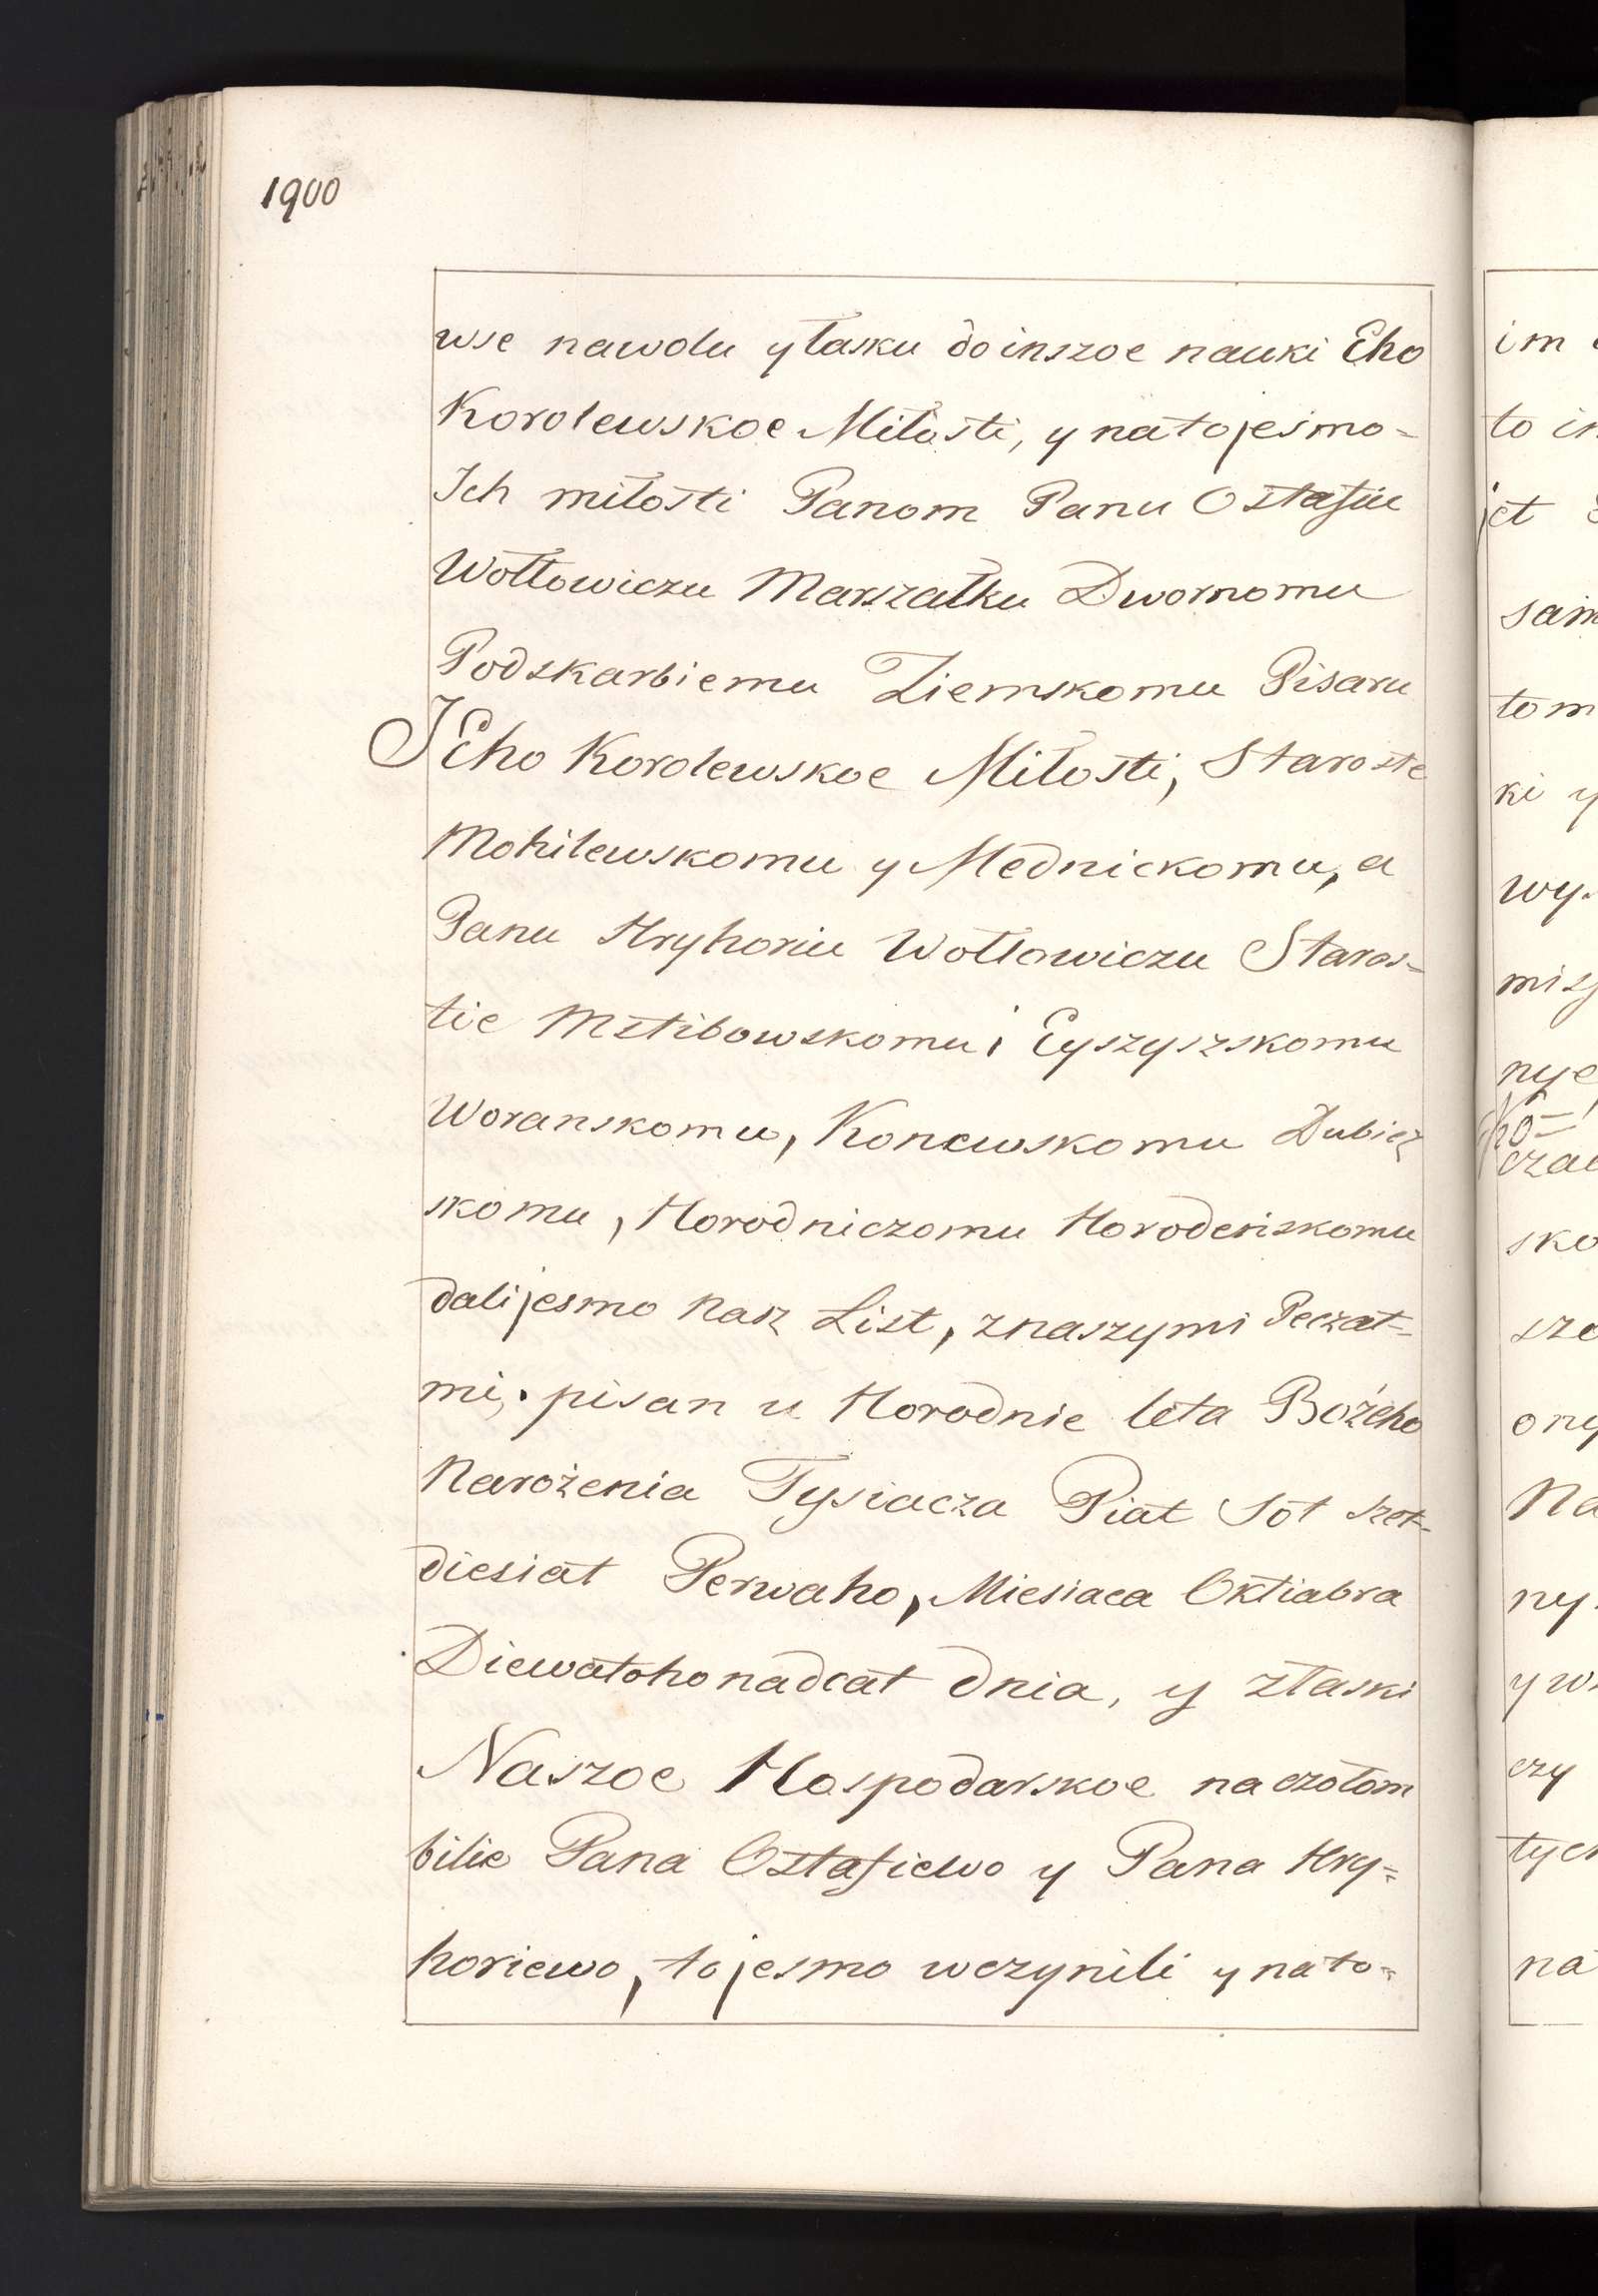 1900
wse nawolu y łasku do inszoe nauki Eho
Korolewskoe Miłosti, y na to jesmo-
Ich miłosti Panom Panu Ostafiu
Wołłowiczu Marszałku Dwornomu
Podskarbiemu Ziemskomu Pisaru
JEho Korolewskoe Miłosti, Staroste
Mohilewskomu y Mednickomu, a
Panu Hryhoriu Wołłowiczu Staros-
tie Mstibowskomu i Eyszyszskomu
Woranskomu, Konewskomu Dubicz
skomu, Horodniczomu Horodenskomu
dali jesmo nasz List, z naszymi Peczat-
mi, pisan u Horodnie leta Bożeho
Narożenia Tysiacza Piat Sot szet-
diesiat Perwaho, Miesiaca Oktiabra
Diewatohonadcat dnia, y złaski
Naszoe Hospodarskoe na czołom
bilie Pana Ostafiewo y Pana Hry-
horiewo, to jesmo wczynili y na to-
im
to in
jet
sam
tom
ki y
wy
misz
nye
ho
czae
sko
szo
ony
Na
ny
y w
czy
tych
na